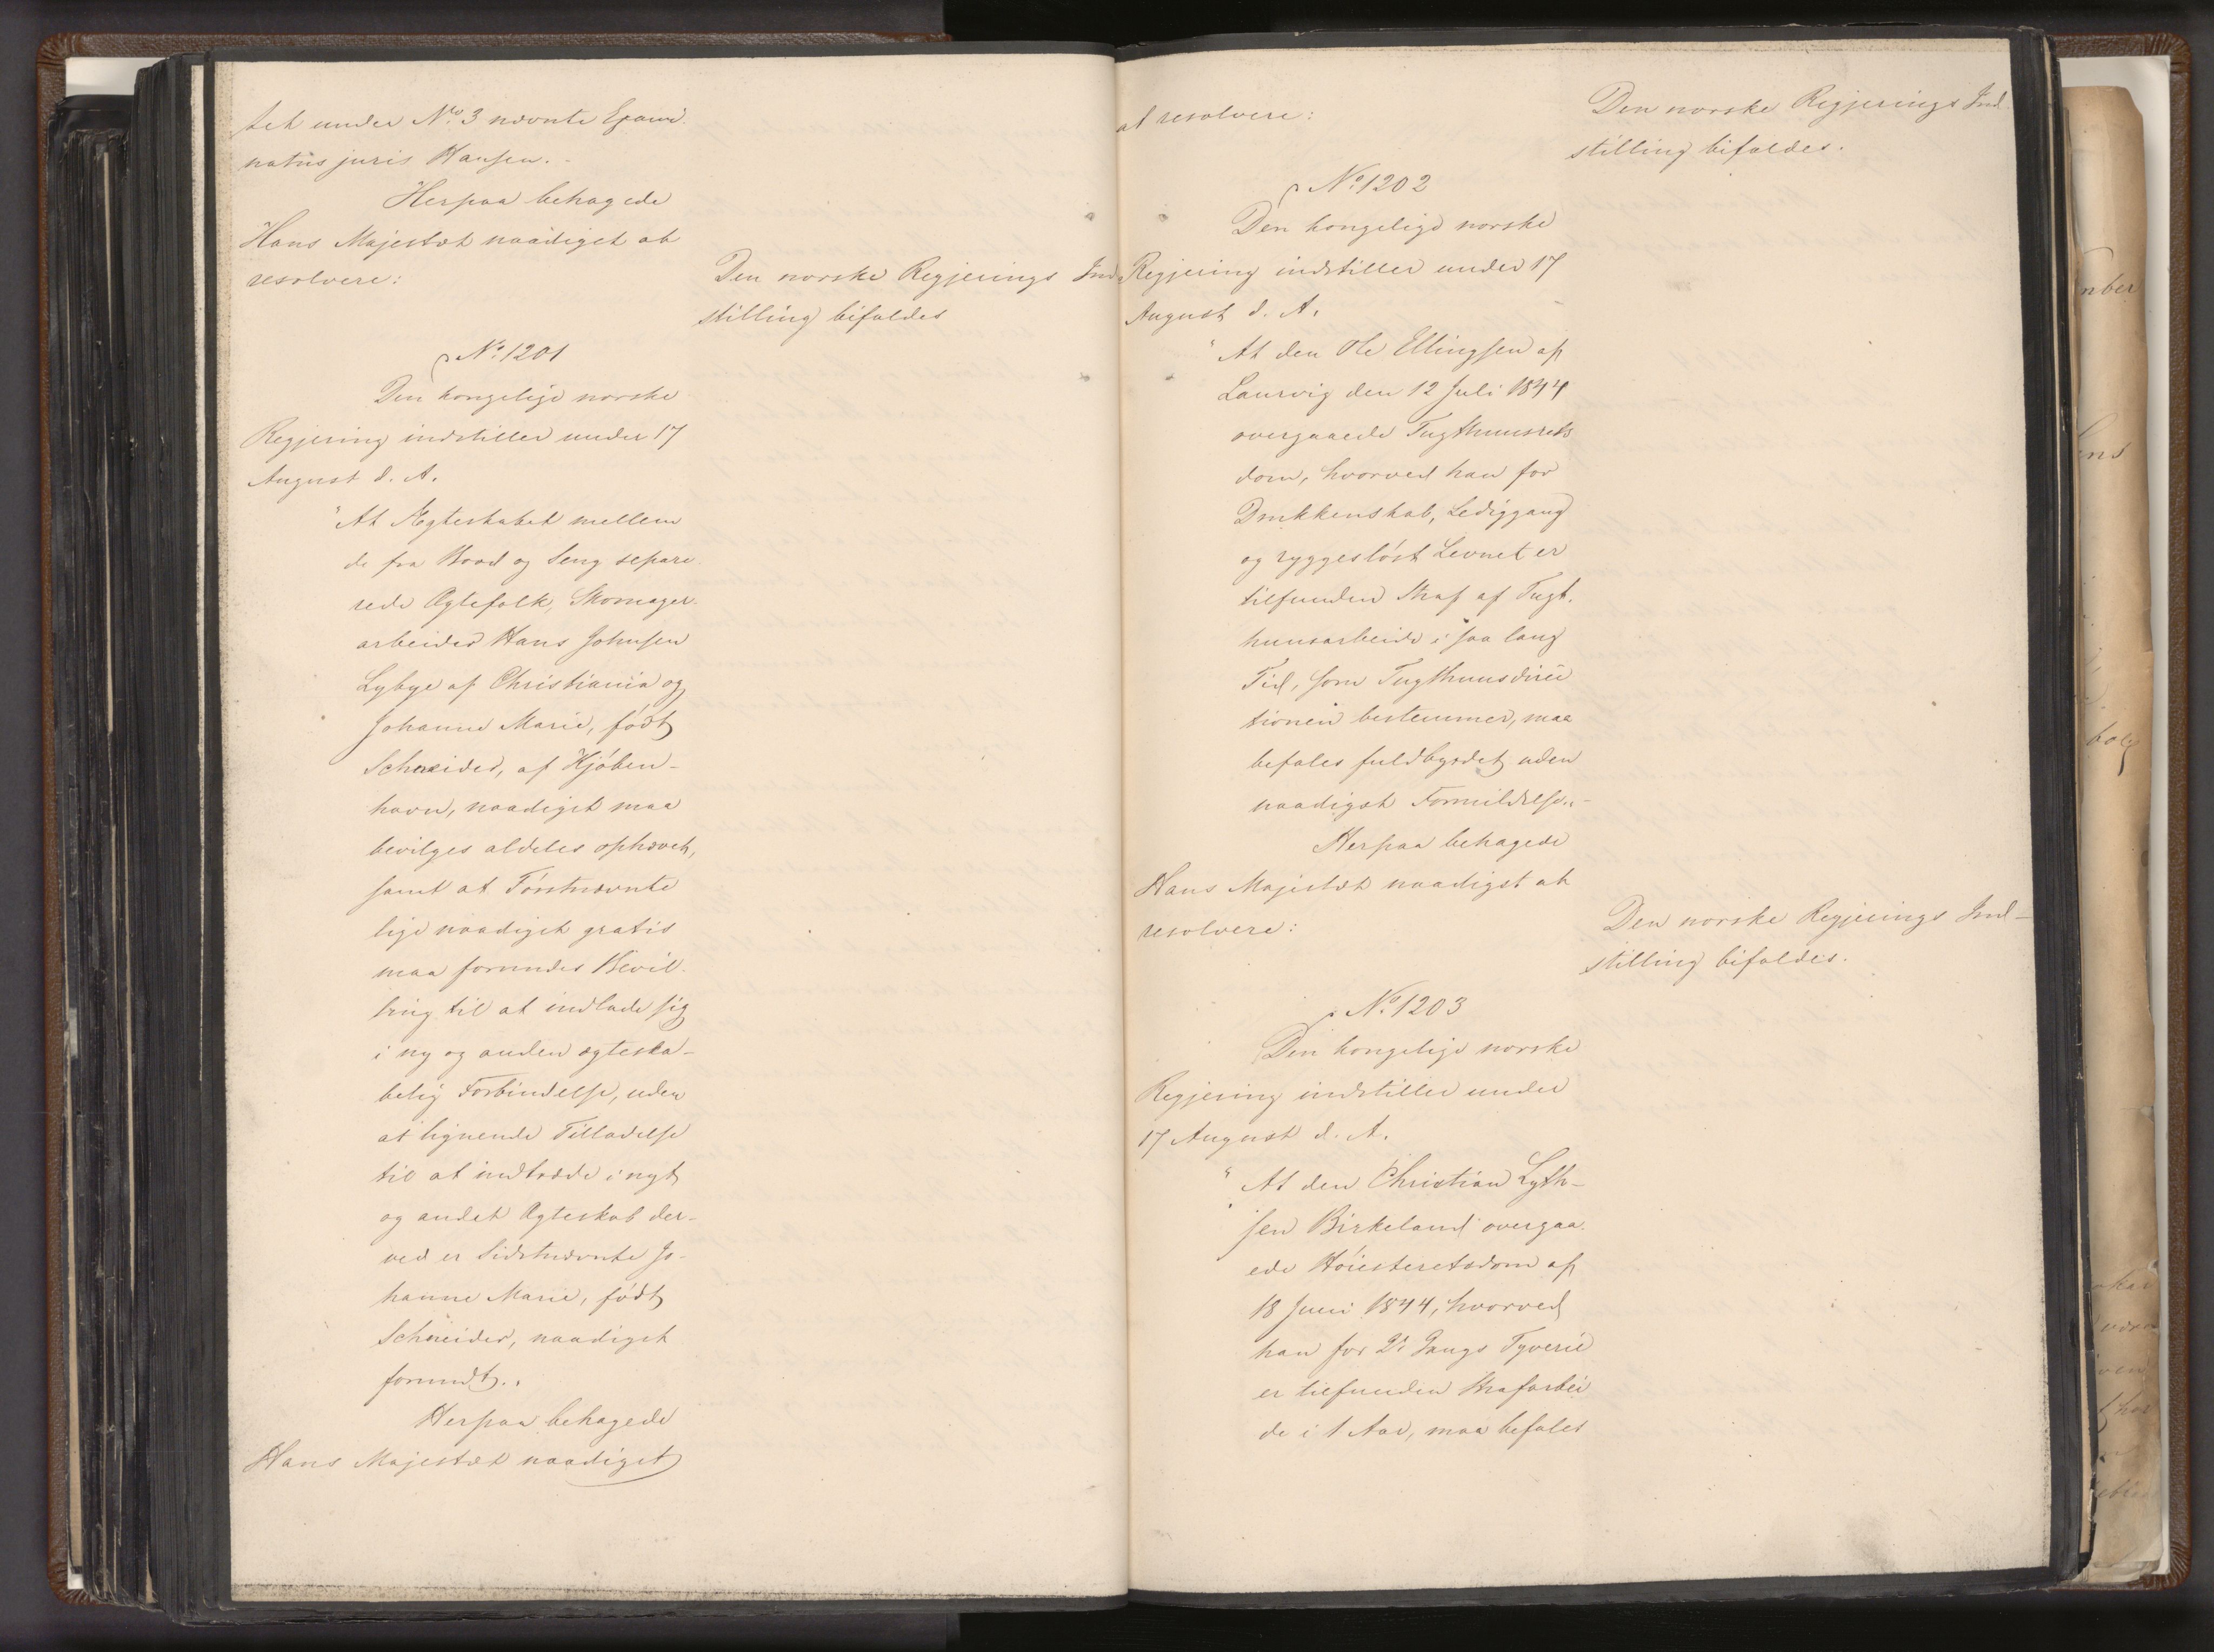 tet under No. 3 nævnte Exami-
natus juris Hansen.
Herpaa behagede
Hans Majestæt naadigst at
resolvere:
Den norske Regjerings Ind-
stilling bifaldes
No. 1201
Den kongelige norske
Regjering indstiller under 17
August d. A.
"At Ægteskabet mellem
de fra Bord og Seng sepere-
rede Ægtefolk, Skomager-
arbeider Hans Johnsen
Lybye af Christiania og
Johanne Marie, født
Schneider, af Kjøben-
havn, naadigst maa
bevilges aldeles ophævet,
samt at Førstnævnte
lige naadigst gratis
maa forundes Bevil-
ling til at indlade sig
i ny og anden ægteska-
belig Forbindelse, uden
at lignende Tilladelse
til at indtræde i nyt
og andet Ægteskab der-
ved er Sidstnævnte Jo-
hanne Marie, født
Schneider, naadigst
forundt."
Herpaa behagede
Hans Majestæt naadigst
at resolvere:
Den norske Regjerings Ind-
stilling bifaldes.
No. 1202
Den kongelige norske
Regjering indstiller under 17
August d. A.
"At den Ole Ellingsen af
Laurvig den 12 Juli 1844
overgaaede Tugthuusrets
dom, hvorved han for
Drukkenskab, Lediggang
og ryggesløst Levnet er
tilfunden Straf af Tugt-
huusarbeide i saa lang
Tid, som Tugthuusdirec
tionen bestemmer, maa
befales fuldbyrdet uden
naadigst Formildelse."
Herpaa behagede
Hans Majestæt naadigst at
resolvere:
Den norske Regjerings Ind-
stilling bifaldes.
No. 1203
Den kongelige norske
Regjering indstiller under
17 August d. A.
"At den Christian Lyth-
sen Birkeland overgaa-
ede Høiesteretsdom af
18 Juni 1844, hvorved
han for 2. Gangs Tyverie
er tilfunden Strafarbei
de i 1 Aar, maa befales